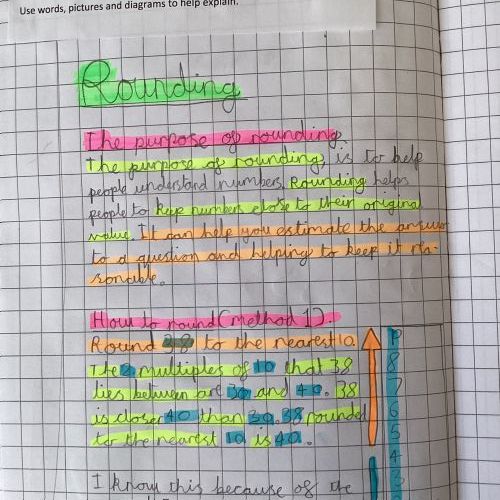 Use words, pictures and diagrams to help explain.
Rounding
The purpose of rounding
The purpose of rounding, is to help
people understand numbers. Rounding helps
people to keep numbers close to their original
value. It can help you estimate the answer
to a question and helping to keep it rea-
sonable.
How to round (method 1).
Round 38 to the nearest 10
The 2 multiples of 10 that 38
lies between are 30 and 40. 38
is closer 40 than 30. 38 rounded
to the nearest 10 is 40.
I know this because of the
8
7
6
5
4
3